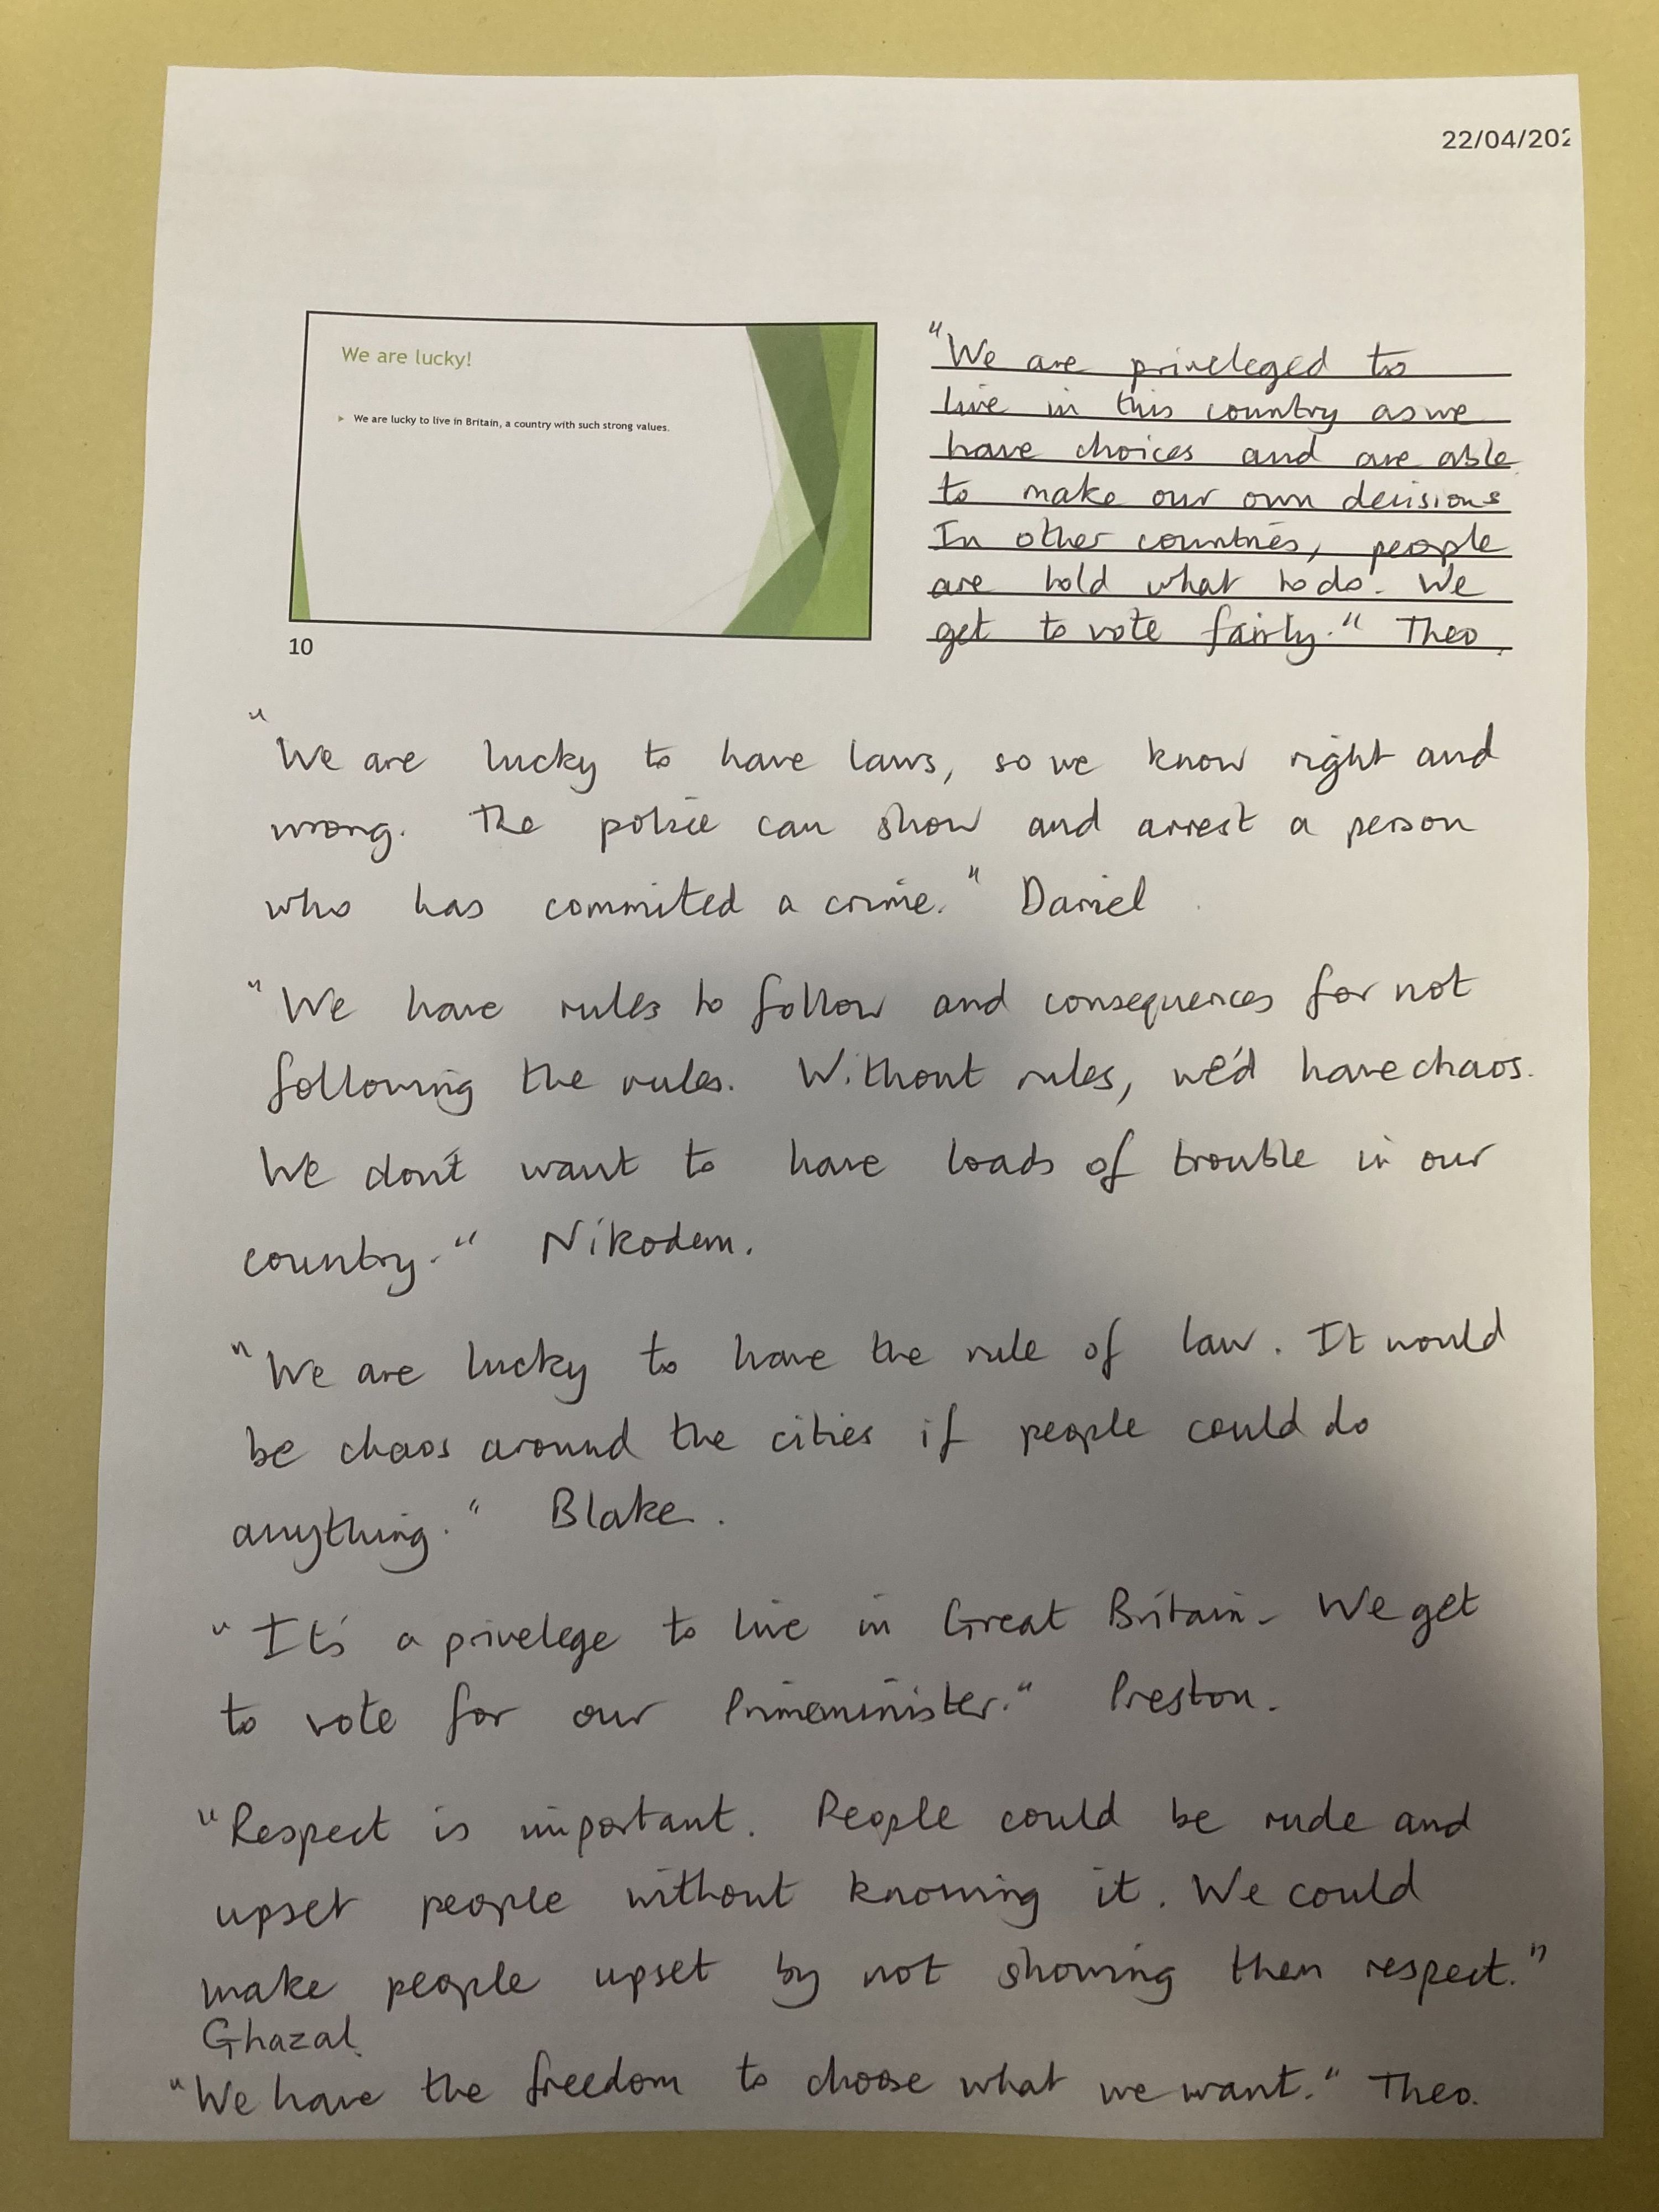 22/04/202
We are lucky!
We are lucky to live in Britain, a country with such strong values.
10
"We are priveleged to
live in this country as we
have choices and are able
to make our own decisions
In other countries, people
are told what to do. We
get to vote fairly." Theo.
"We are lucky to have laws, so we know right and
wrong. The police can show and arrest a person
who has commited a crime." Daniel
"We have rules to follow and consequences for not
following the rules. Without rules, we'd have chaos.
We don't want to have loads of trouble in our
country." Nikodem.
"We are lucky to have the rule of law. It would
be chaos around the cities if people could do
anything." Blake.
"It's a privelege to live in Great Britain. We get
to vote for our Primeminister." Preston.
"Respect is important. People could be rude and
upset people without knowing it. We could
make people upset by not showing them respect."
Ghazal.
"We have the freedom to choose what we want." Theo.